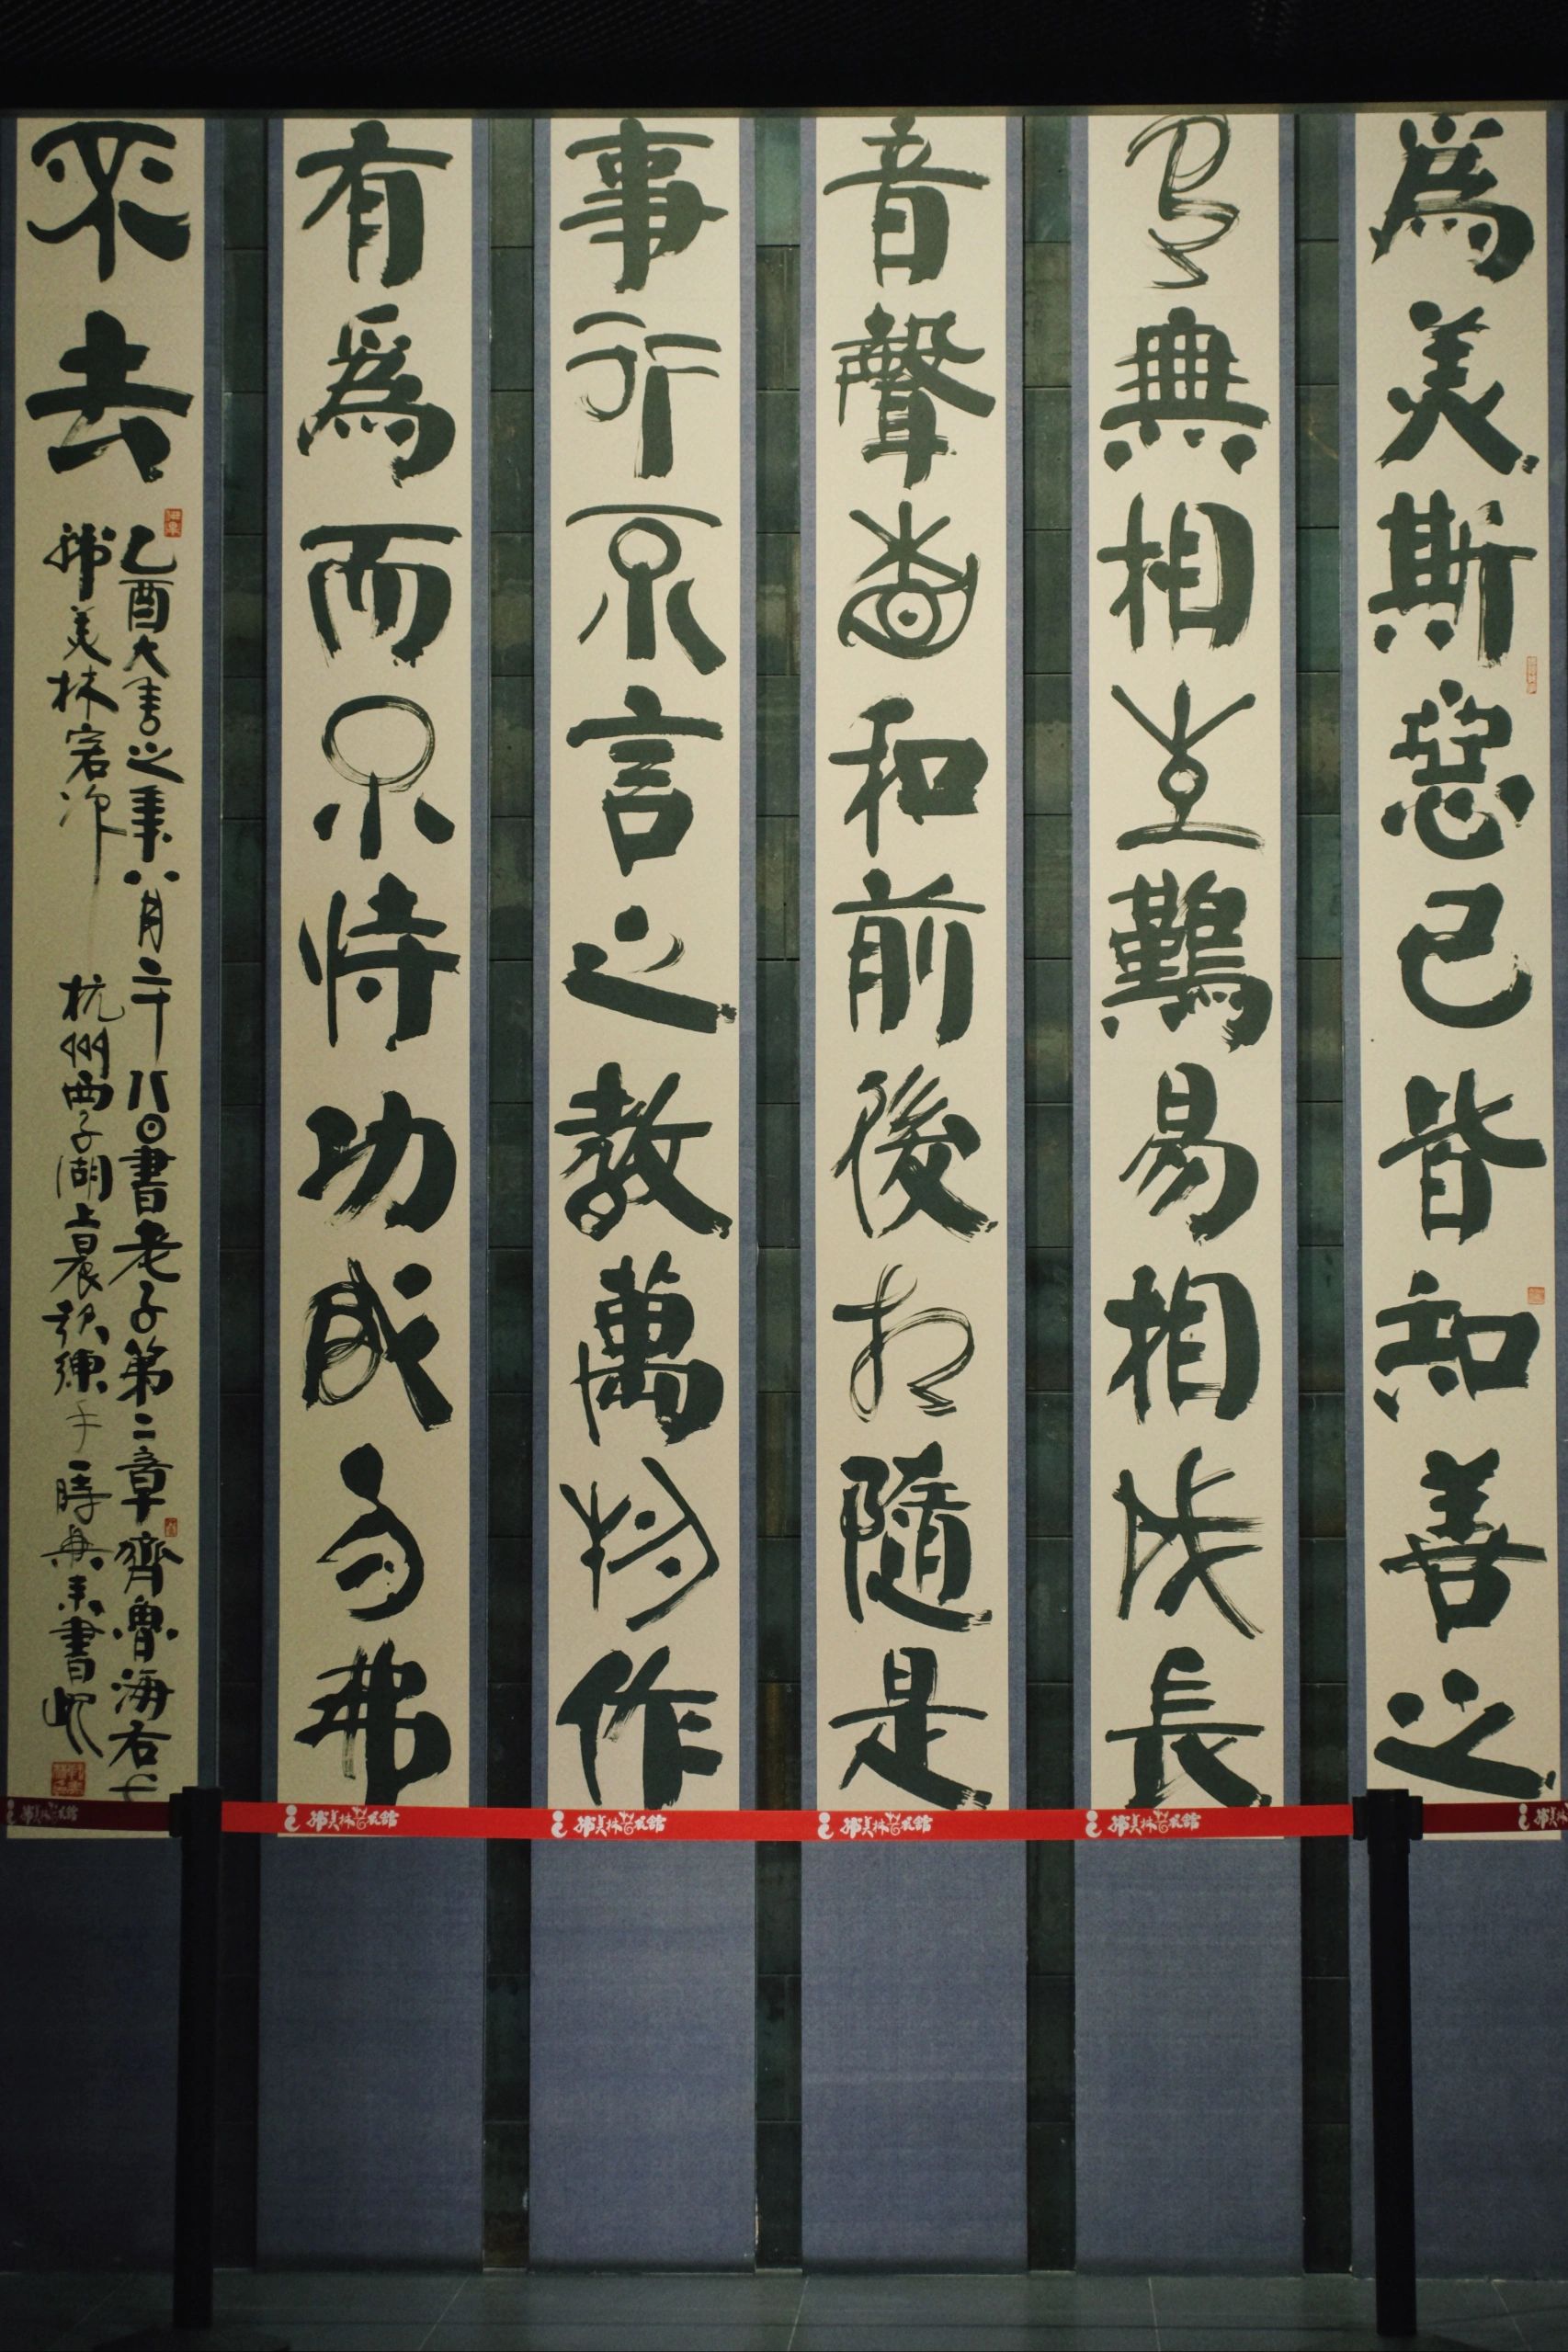 為美斯惡已皆知善之
有無相生難易相成長
音聲相和前後相隨是
事行不言之教萬物作
有為而不恃功成而弗
不去
乙酉大吉之年八月二十八日書老子第二章齊魯海右
韓美林客次杭州西子湖上晨起練手一時興來書此
韓美林藝術館
韓美林藝術館
韓美林藝術館
韓美林藝術館
韓美林藝術館